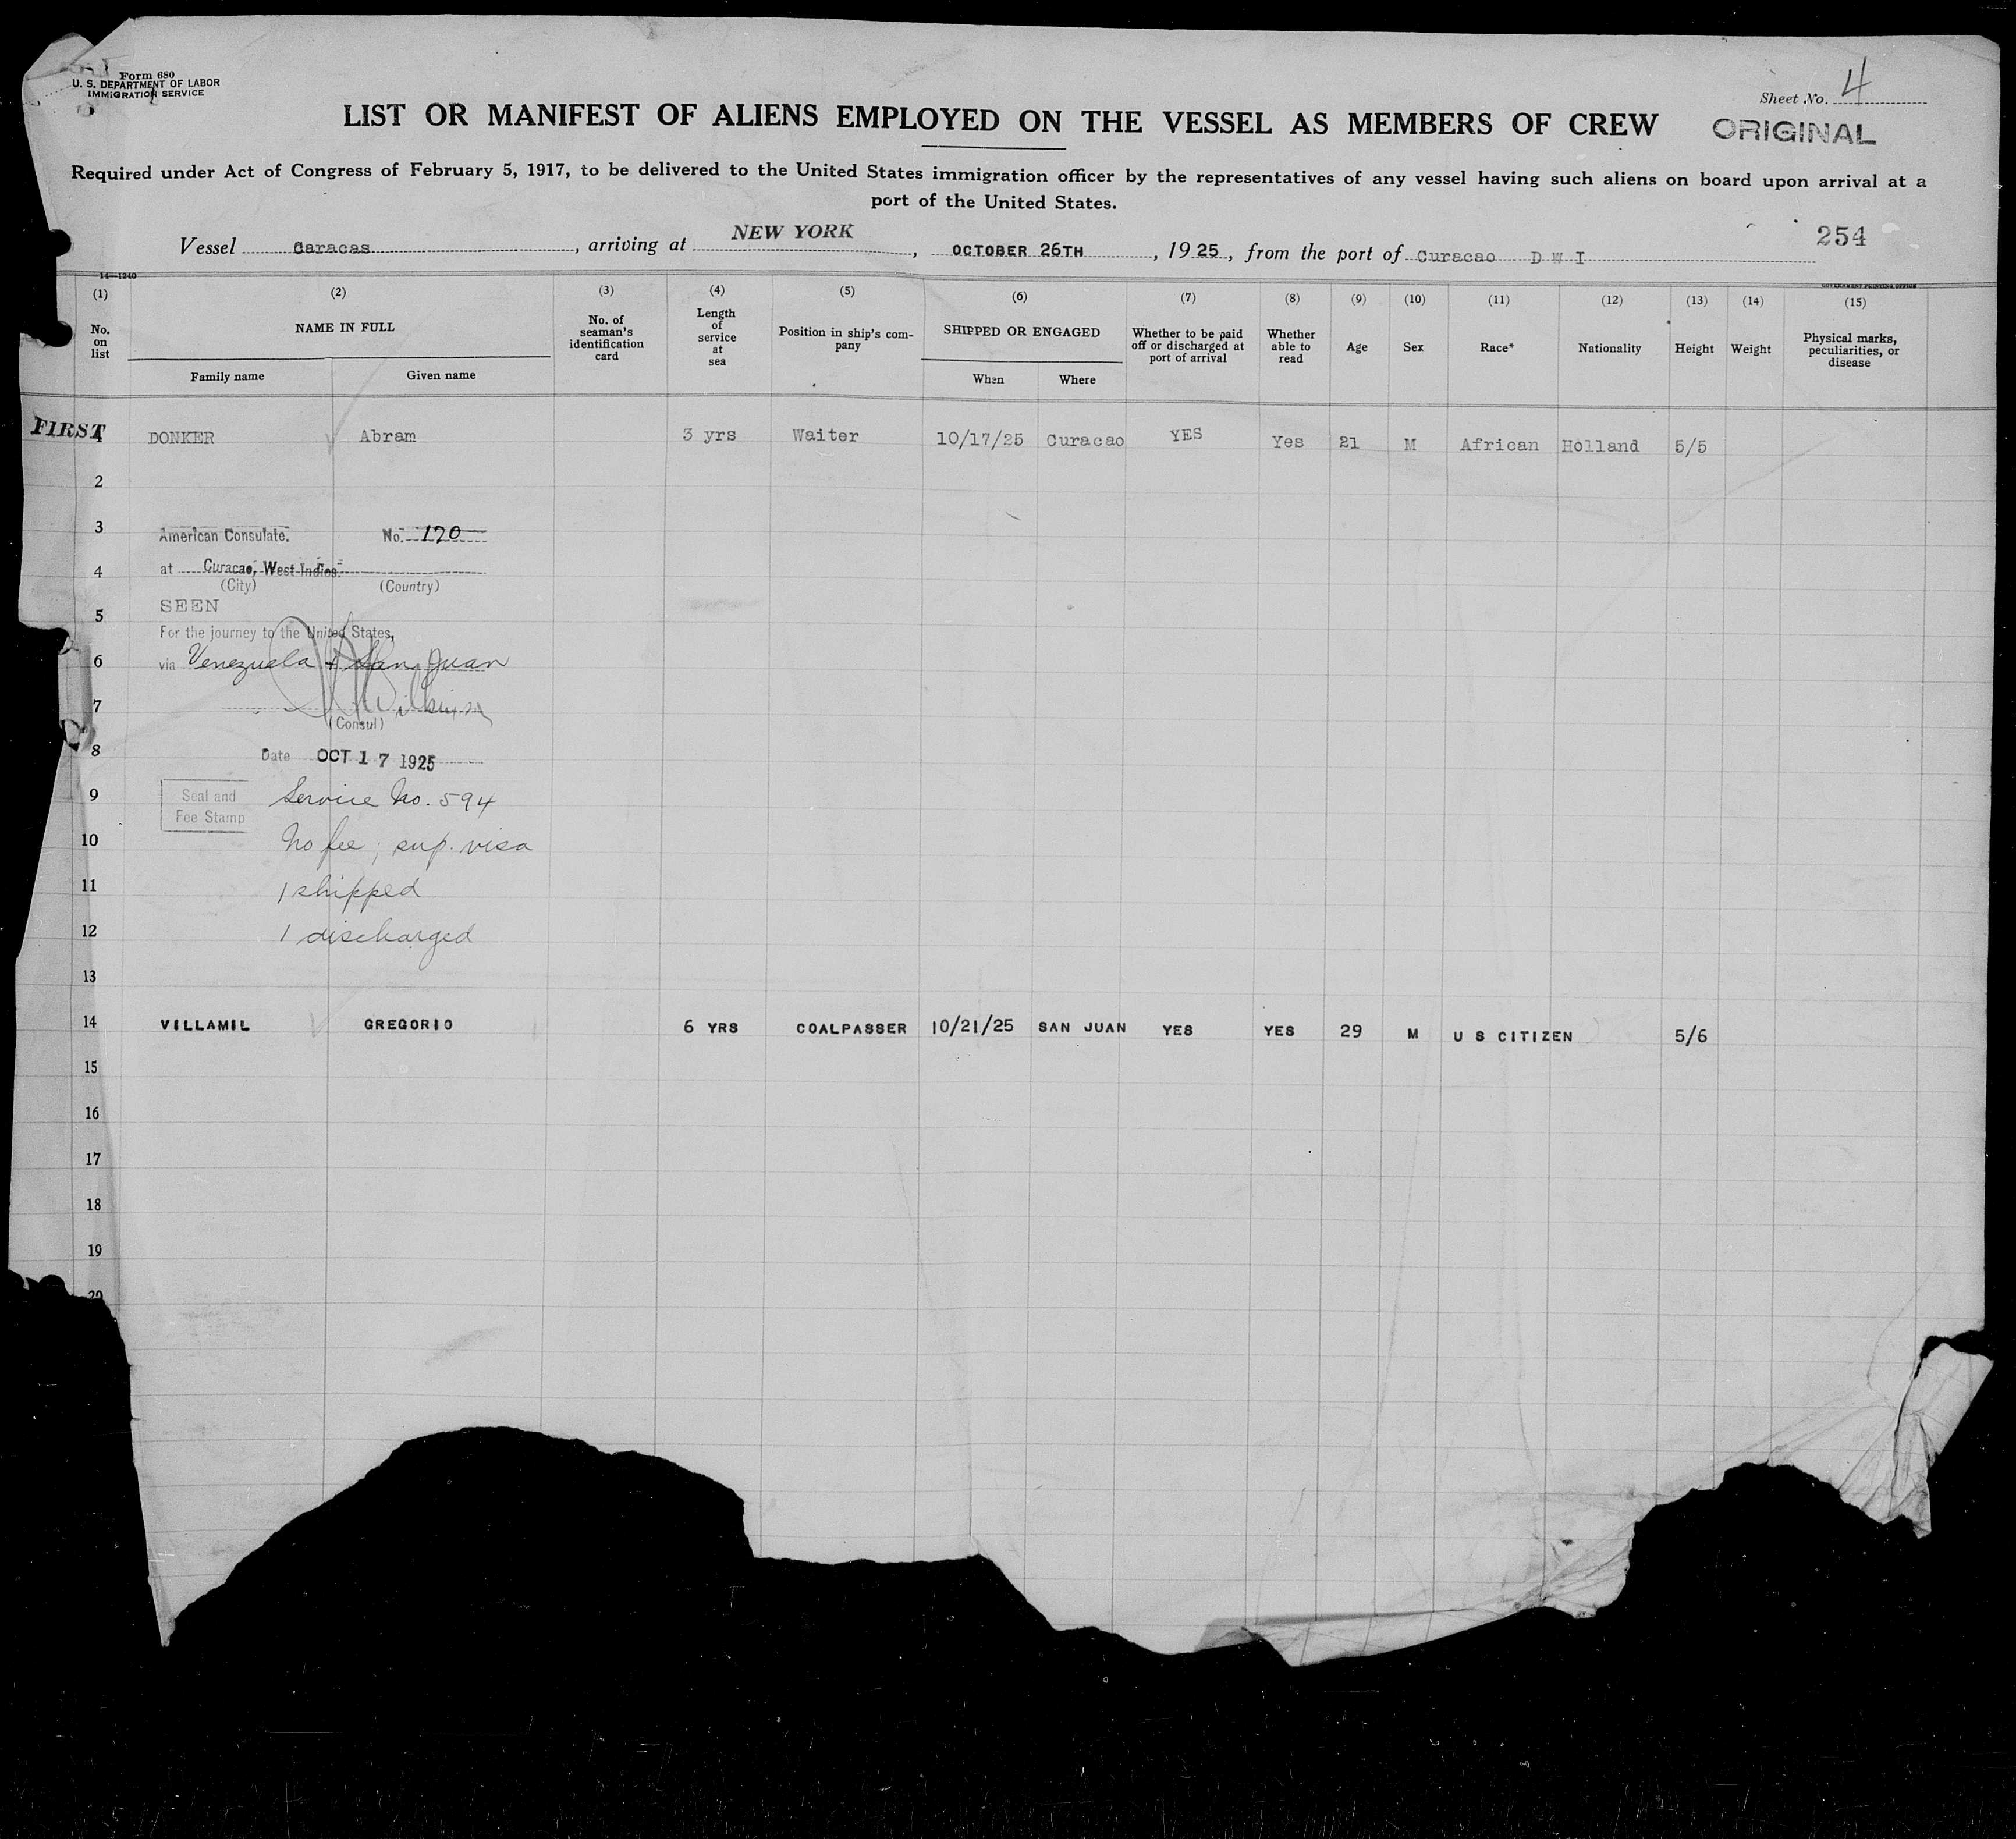 Form 680
U. S. DEPARTMENT OF LABOR
IMMIGRATION SERVICE
Sheet No. 4
LIST OR MANIFEST OF ALIENS EMPLOYED ON THE VESSEL AS MEMBERS OF CREW
ORIGINAL
Required under Act of Congress of February 5, 1917, to be delivered to the United States immigration officer by the representatives of any vessel having such aliens on board upon arrival at a
port of the United States.
Vessel Caracas, arriving at NEW YORK, OCTOBER 26TH, 1925, from the port of Curacao D W I
254
14—1240
GOVERNMENT PRINTING OFFICE
(1) (2) (3) (4) (5) (6) (7) (8) (9) (10) (11) (12) (13) (14) (15)
No. on list
NAME IN FULL
Family name Given name
No. of seaman's identification card
Length of service at sea
Position in ship's company
SHIPPED OR ENGAGED
When Where
Whether to be paid off or discharged at port of arrival
Whether able to read
Age
Sex
Race*
Nationality
Height
Weight
Physical marks, peculiarities, or disease
FIRST
1 DONKER Abram 3 yrs Waiter 10/17/25 Curacao YES Yes 21 M African Holland 5/5
2
3 American Consulate. No. 170
4 at Curacao, West Indies.
(City) (Country)
SEEN
5
For the journey to the United States,
6 via Venezuela & San Juan
7
(Consul)
8 Date OCT 17 1925
9 Seal and Fee Stamp Service No. 594
10 No fee; sup. visa
11 1 shipped
12 1 discharged
13
14 VILLAMIL GREGORIO 6 YRS COALPASSER 10/21/25 SAN JUAN YES YES 29 M U S CITIZEN 5/6
15
16
17
18
19
20